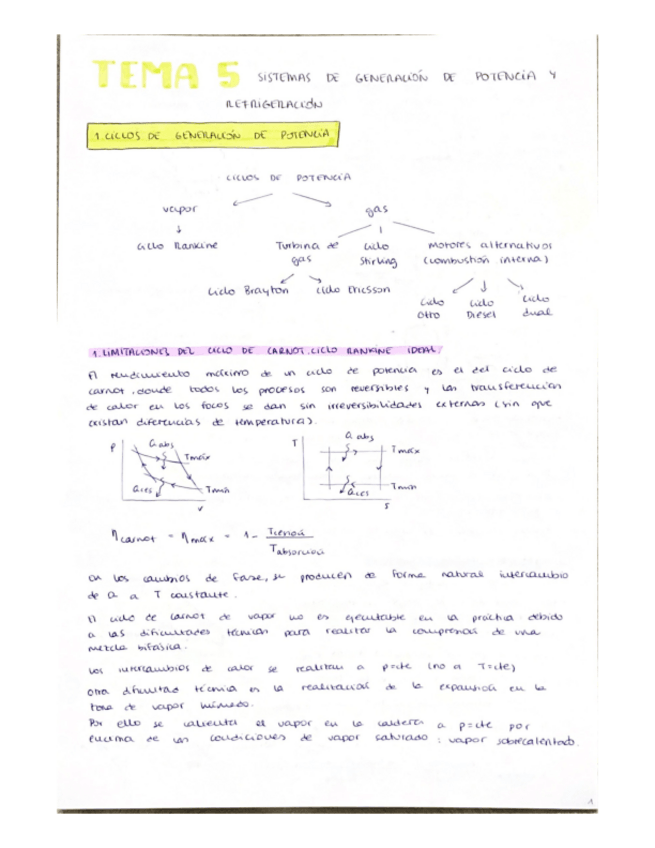 TEMA 5 SISTEMAS DE GENERACIÓN DE POTENCIA Y
REFRIGERACIÓN
1. CICLOS DE GENERACIÓN DE POTENCIA
CICLOS DE POTENCIA
vapor gas
Ciclo Rankine Turbina de gas Ciclo Stirling Motores alternativos (combustión interna)
Ciclo Brayton Ciclo Ericsson
Ciclo Otto Ciclo Diesel Ciclo dual
1. LIMITACIONES DEL CICLO DE CARNOT. CICLO RANKINE IDEAL.
El rendimiento máximo de un ciclo de potencia es el del ciclo de
carnot, donde todos los procesos son reversibles y las transferencias
de calor en los focos se dan sin irreversibilidades externas (sin que
existan diferencias de temperatura).
P Q abs Tmáx Q ces Tmin v
T Q abs Tmáx Tmin Q ces s
η carnot = η máx = 1 - T cesión / T absorción
En los cambios de fase, se producen de forma natural intercambio
de Q a T constante.
El ciclo de carnot de vapor no es ejecutable en la práctica debido
a las dificultades técnicas para realizar la compresión de una
mezcla bifásica.
Los intercambios de calor se realizan a p=cte (no a T=cte)
Otra dificultad técnica es la realización de la expansión en la
zona de vapor húmedo.
Por ello se calienta el vapor en la caldera a p=cte por
encima de las condiciones de vapor saturado: vapor sobrecalentado.
1